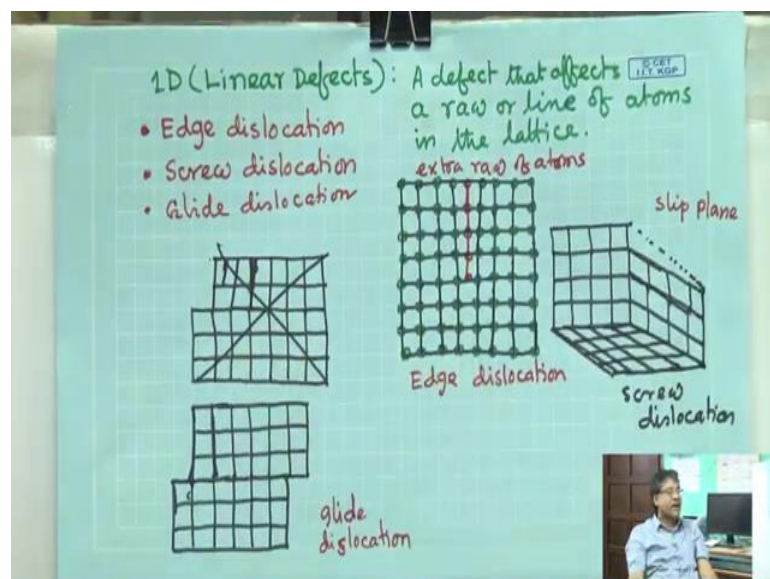 1D (Linear Defects): A defect that affects
a raw or line of atoms
in the lattice.
© CET
I.I.T. KGP
• Edge dislocation
• Screw dislocation
• Glide dislocation
extra raw of atoms
slip plane
Edge dislocation
screw
dislocation
glide
dislocation